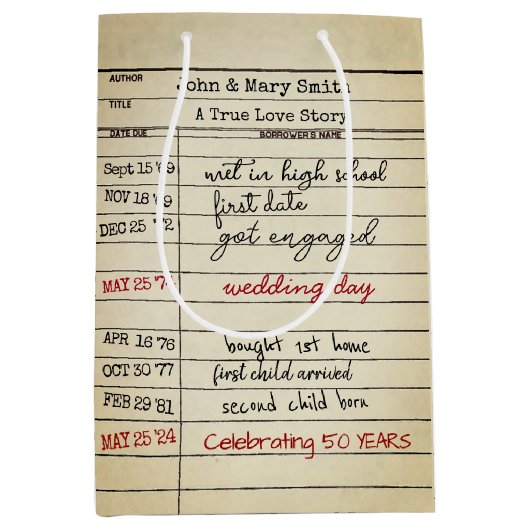 AUTHOR John & Mary Smith
TITLE A True Love Story
DATE DUE BORROWER'S NAME
Sept 15 '69 met in high school
NOV 18 '69 first date
DEC 25 '72 got engaged
MAY 25 '74 wedding day
APR 16 '76 bought 1st home
OCT 30 '77 first child arrived
FEB 29 '81 second child born
MAY 25 '24 Celebrating 50 YEARS